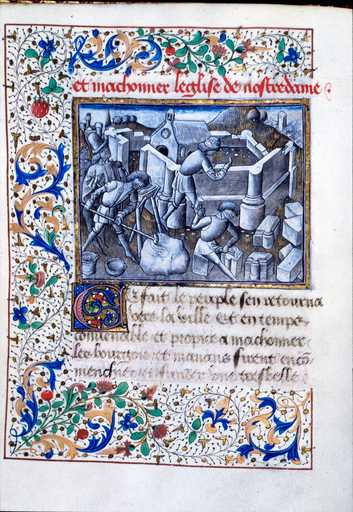 et machonner leglise de nostredame
Ce fait le peuple sen retourna
vers la ville Et en temps
conuenable et propice a machonner
les bourgois et manans furent en co
mencherent fonder une tresbelle